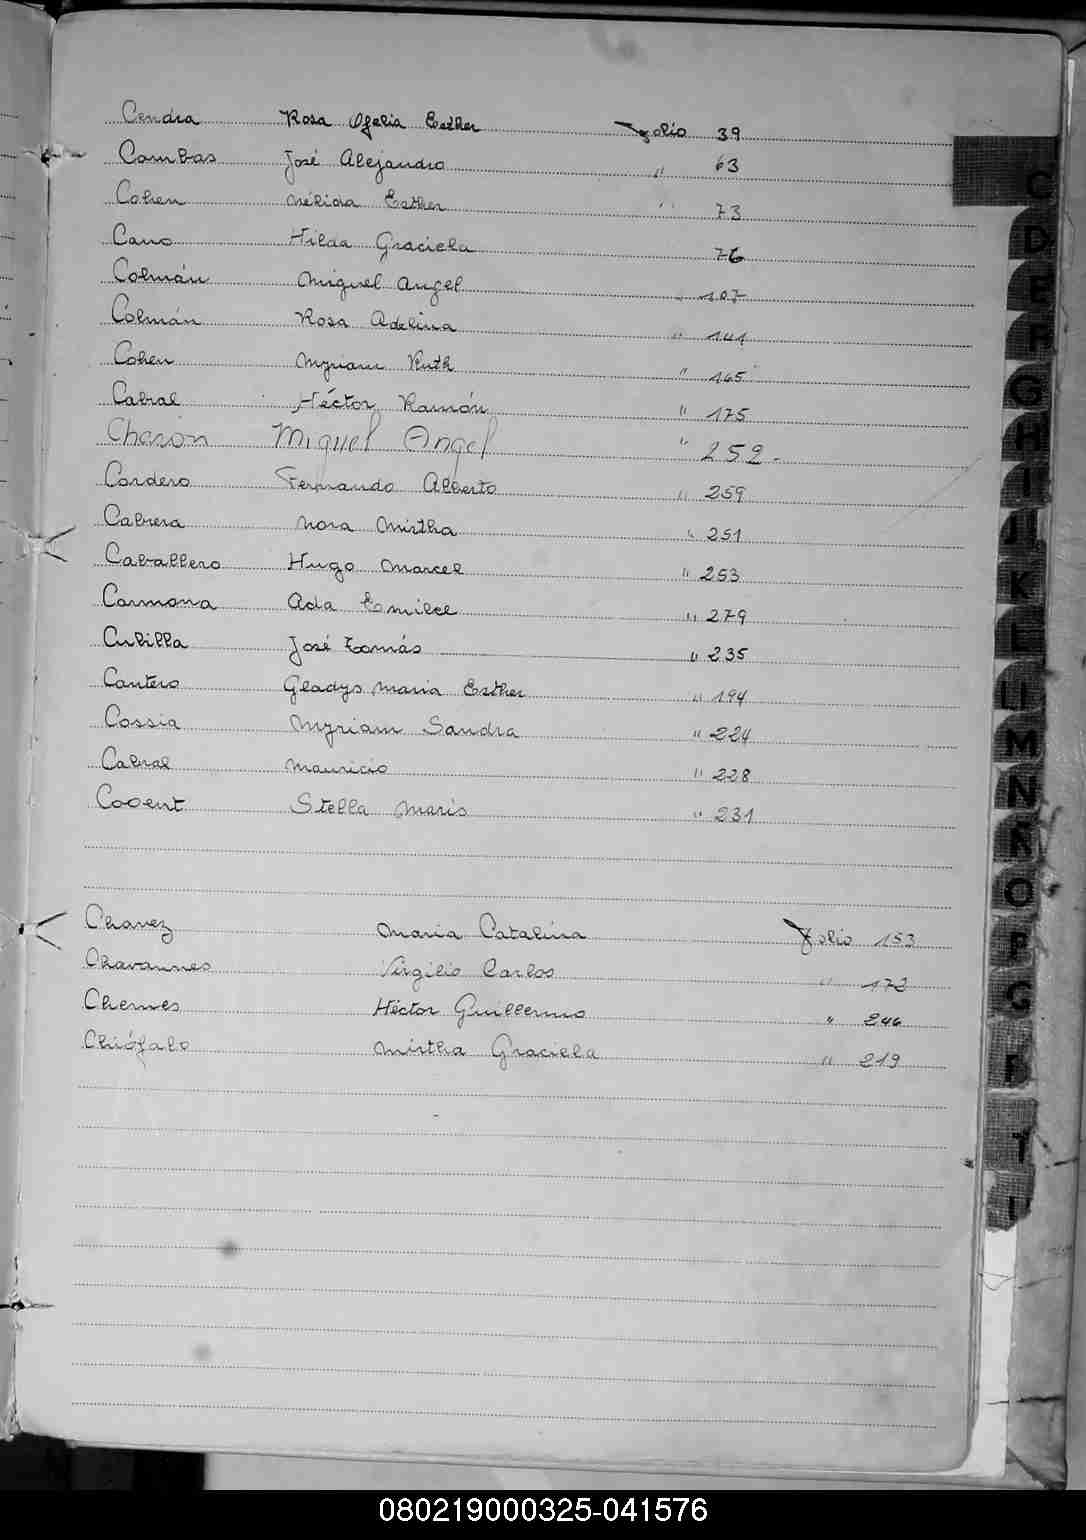 Cendra Rosa Ofelia Esther Folio 39
Combas José Alejandro " 63
Cohen Nélida Esther " 73
Cano Hilda Graciela 76
Colmán Miguel Angel " 107
Colmán Rosa Adelina " 141
Cohen Myriam Ruth " 165
Cabral Héctor Ramón " 175
Charon Miguel Angel " 252-
Cordero Fernando Alberto " 259
Cabrera Nora Mirtha " 251
Caballero Hugo Marcel " 253
Carmona Ada Emilce " 279
Cubilla José Tomás " 235
Cantero Gladys Maria Esther " 194
Cossia Myriam Sandra " 224
Cabral Mauricio " 228
Stella Maris " 231
Chavez Maria Catalina Folio 153
Chavannes Virgilio Carlos " 172
Chemes Héctor Guillermo " 246
Mirtha Graciela " 219
C
D
E
F
G
H
I
J
K
L
M
N
O
P
T
080219000325-041576